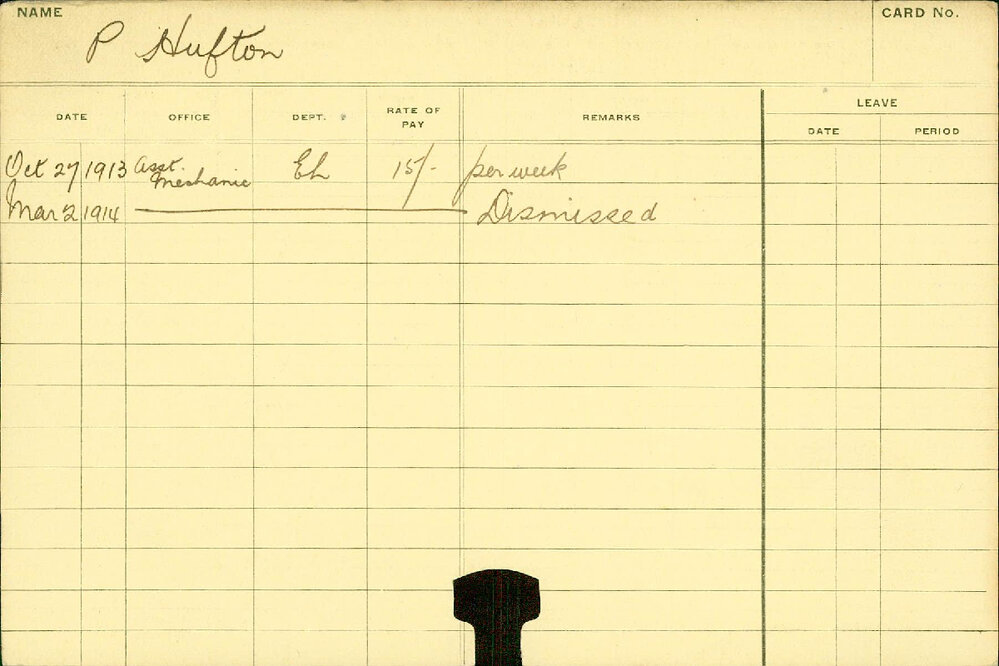 NAME
P Hufton
CARD No.
DATE OFFICE DEPT. RATE OF PAY REMARKS LEAVE
DATE PERIOD
Oct 27 1913 Asst. Mechanic Eh 15/- per week
Mar 2 1914 Dismissed